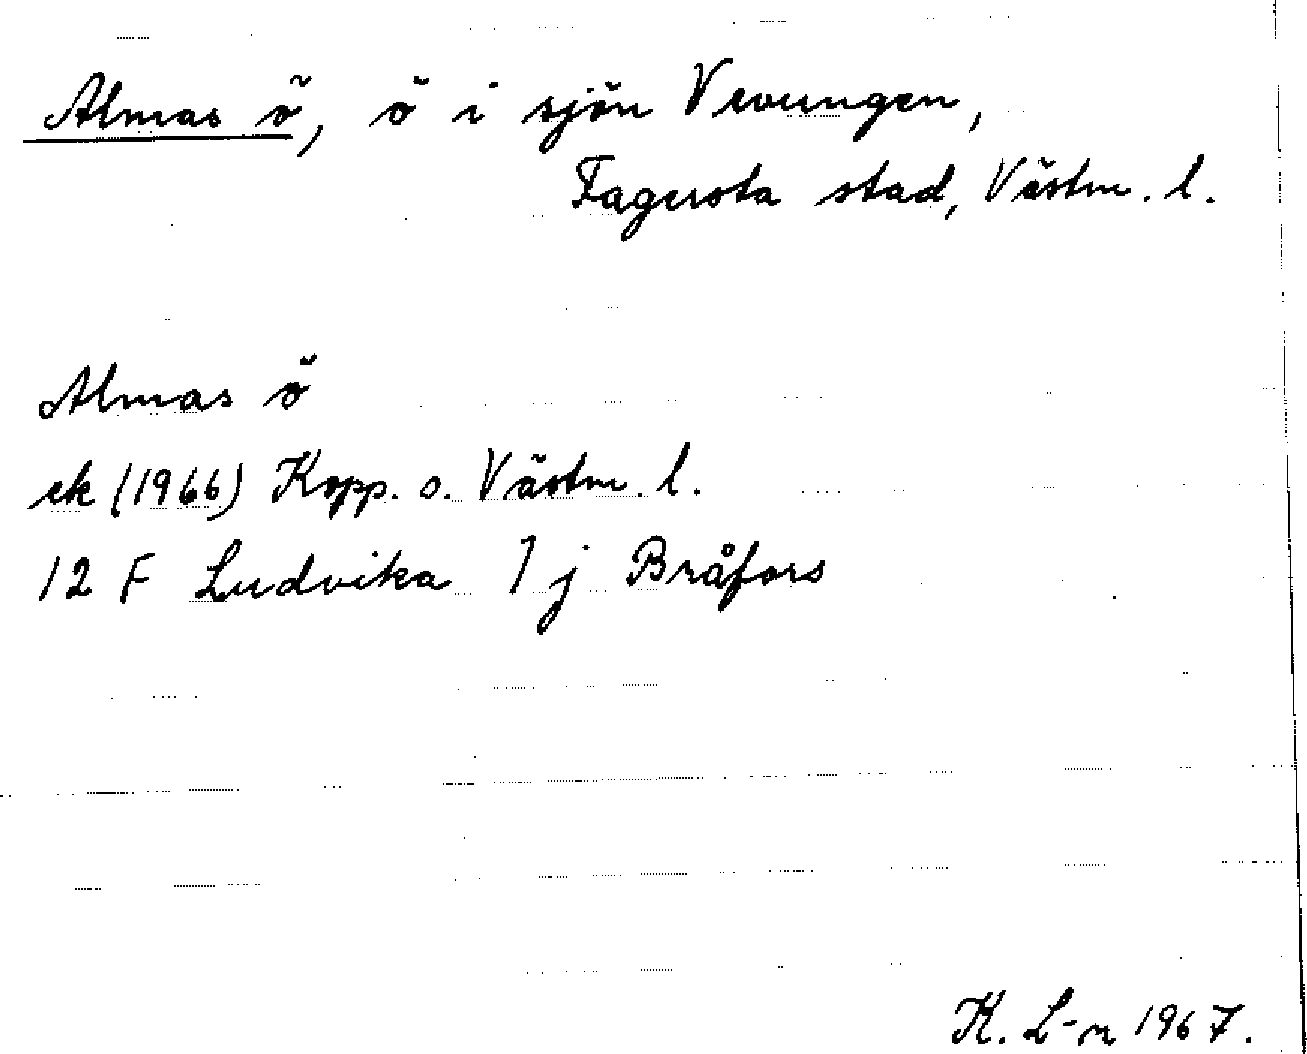 Almas ö, ö i sjön Vevungen,
Fagersta stad, Västm. l.
Almas ö
ek (1966) Kopp. o. Västm. l.
12 F Ludvika 7 j Bråfors
K. L-n 1967.